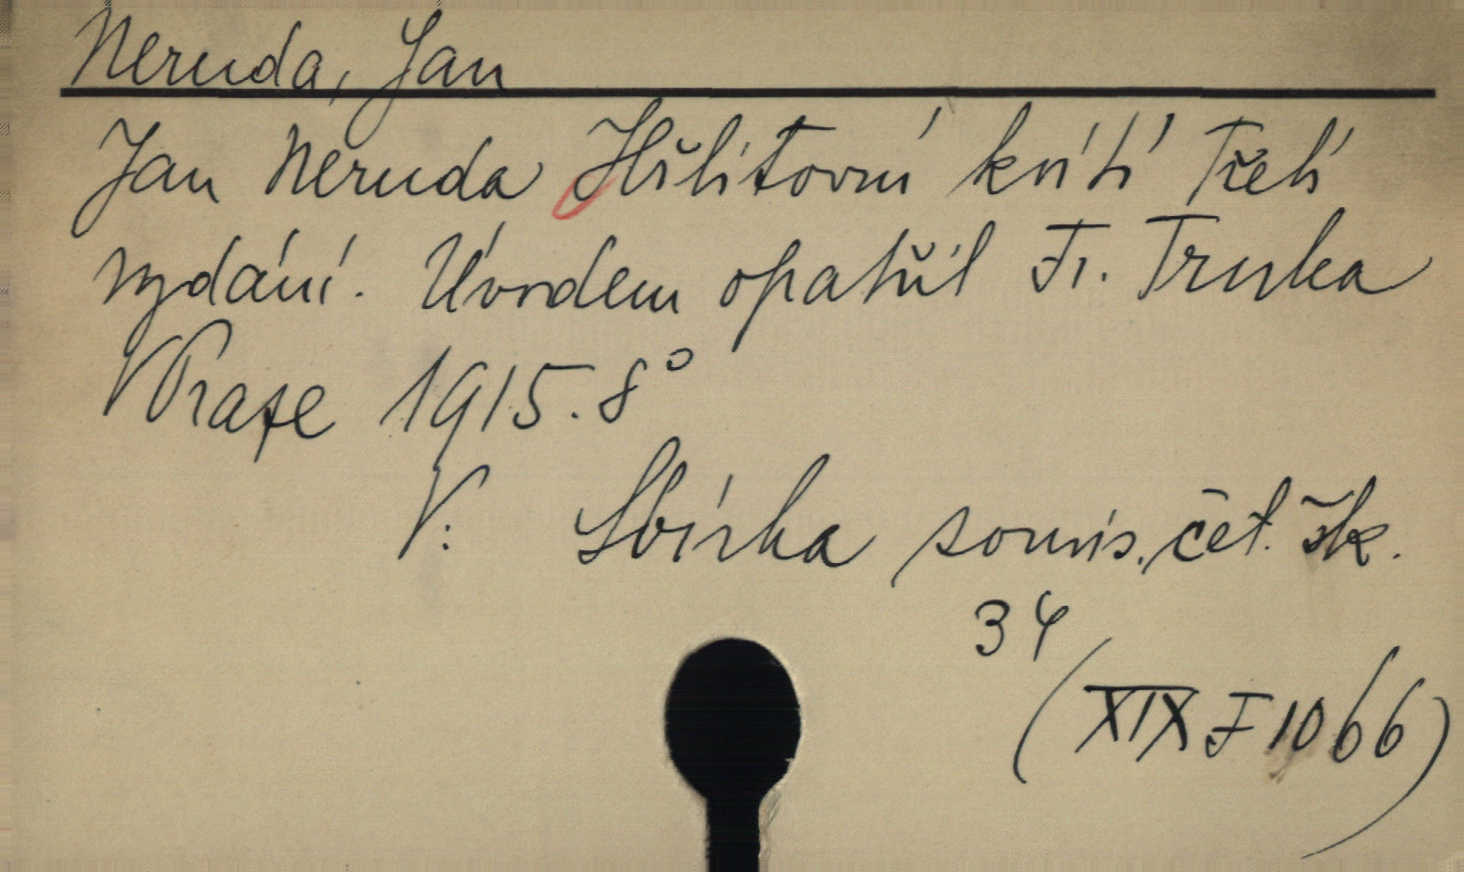 Neruda, Jan
Jan Neruda Hřbitovní kvítí Třetí
vydání. Úvodem opatřil Fr. Truka
V Praze 1915. 8°
V: Sbírka souvis. čet. šk.
34
(XIX F 1066)